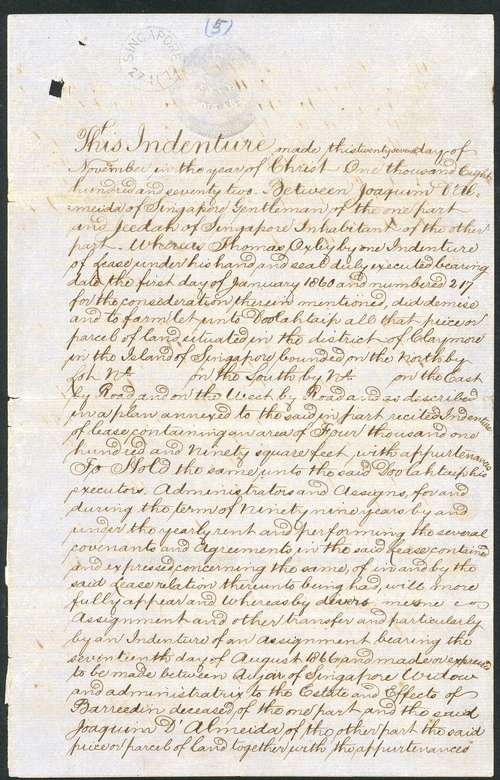 (5)
SINGAPORE
27
This Indenture made this twenty seventh day of
November in the year of Christ One thousand Eight
hundred and seventy two. Between Joaquim D'Al-
meida of Singapore Gentleman of the one part
and Jeedah of Singapore Inhabitant of the other
part. Whereas Thomas Oxley by one Indenture
of lease under his hand and seal duly executed bearing
date the first day of January 1860 and numbered 217
for the consederation therein mentioned, did demise
and to farm let unto Doolahtaip all that piece or
parcel of land situated in the district of Claymore
in the Island of Singapore bounded on the North by
Lot No on the South by No on the East
by Road and on the West by Road and as described
in a plan annexed to the said in part recited Indenture
of lease containing an area of Four thousand one
hundred and Ninety square feet with appurtenances
To Hold the same unto the said Doolahtaip his
executors, Administrators and Assigns, for and
during the term of Ninety nine years by and
under the yearly rent and performing the several
covenants and Agreements in the said Lease contained
and expressed concerning the same, of in and by the
said Lease relation thereunto being had, will more
fully appear and Whereas by divers mesne
Assignment and other transfer and particularly
by an Indenture of an assignment bearing the
seventeenth day of August 1866 and made or expressed
to be made between of Singapore Widow
and administratrix to the Estate and Effects of
Barreedin deceased of the one part and the said
Joaquim D'Almeida of the other part the said
piece or parcel of land together with the appurtenances